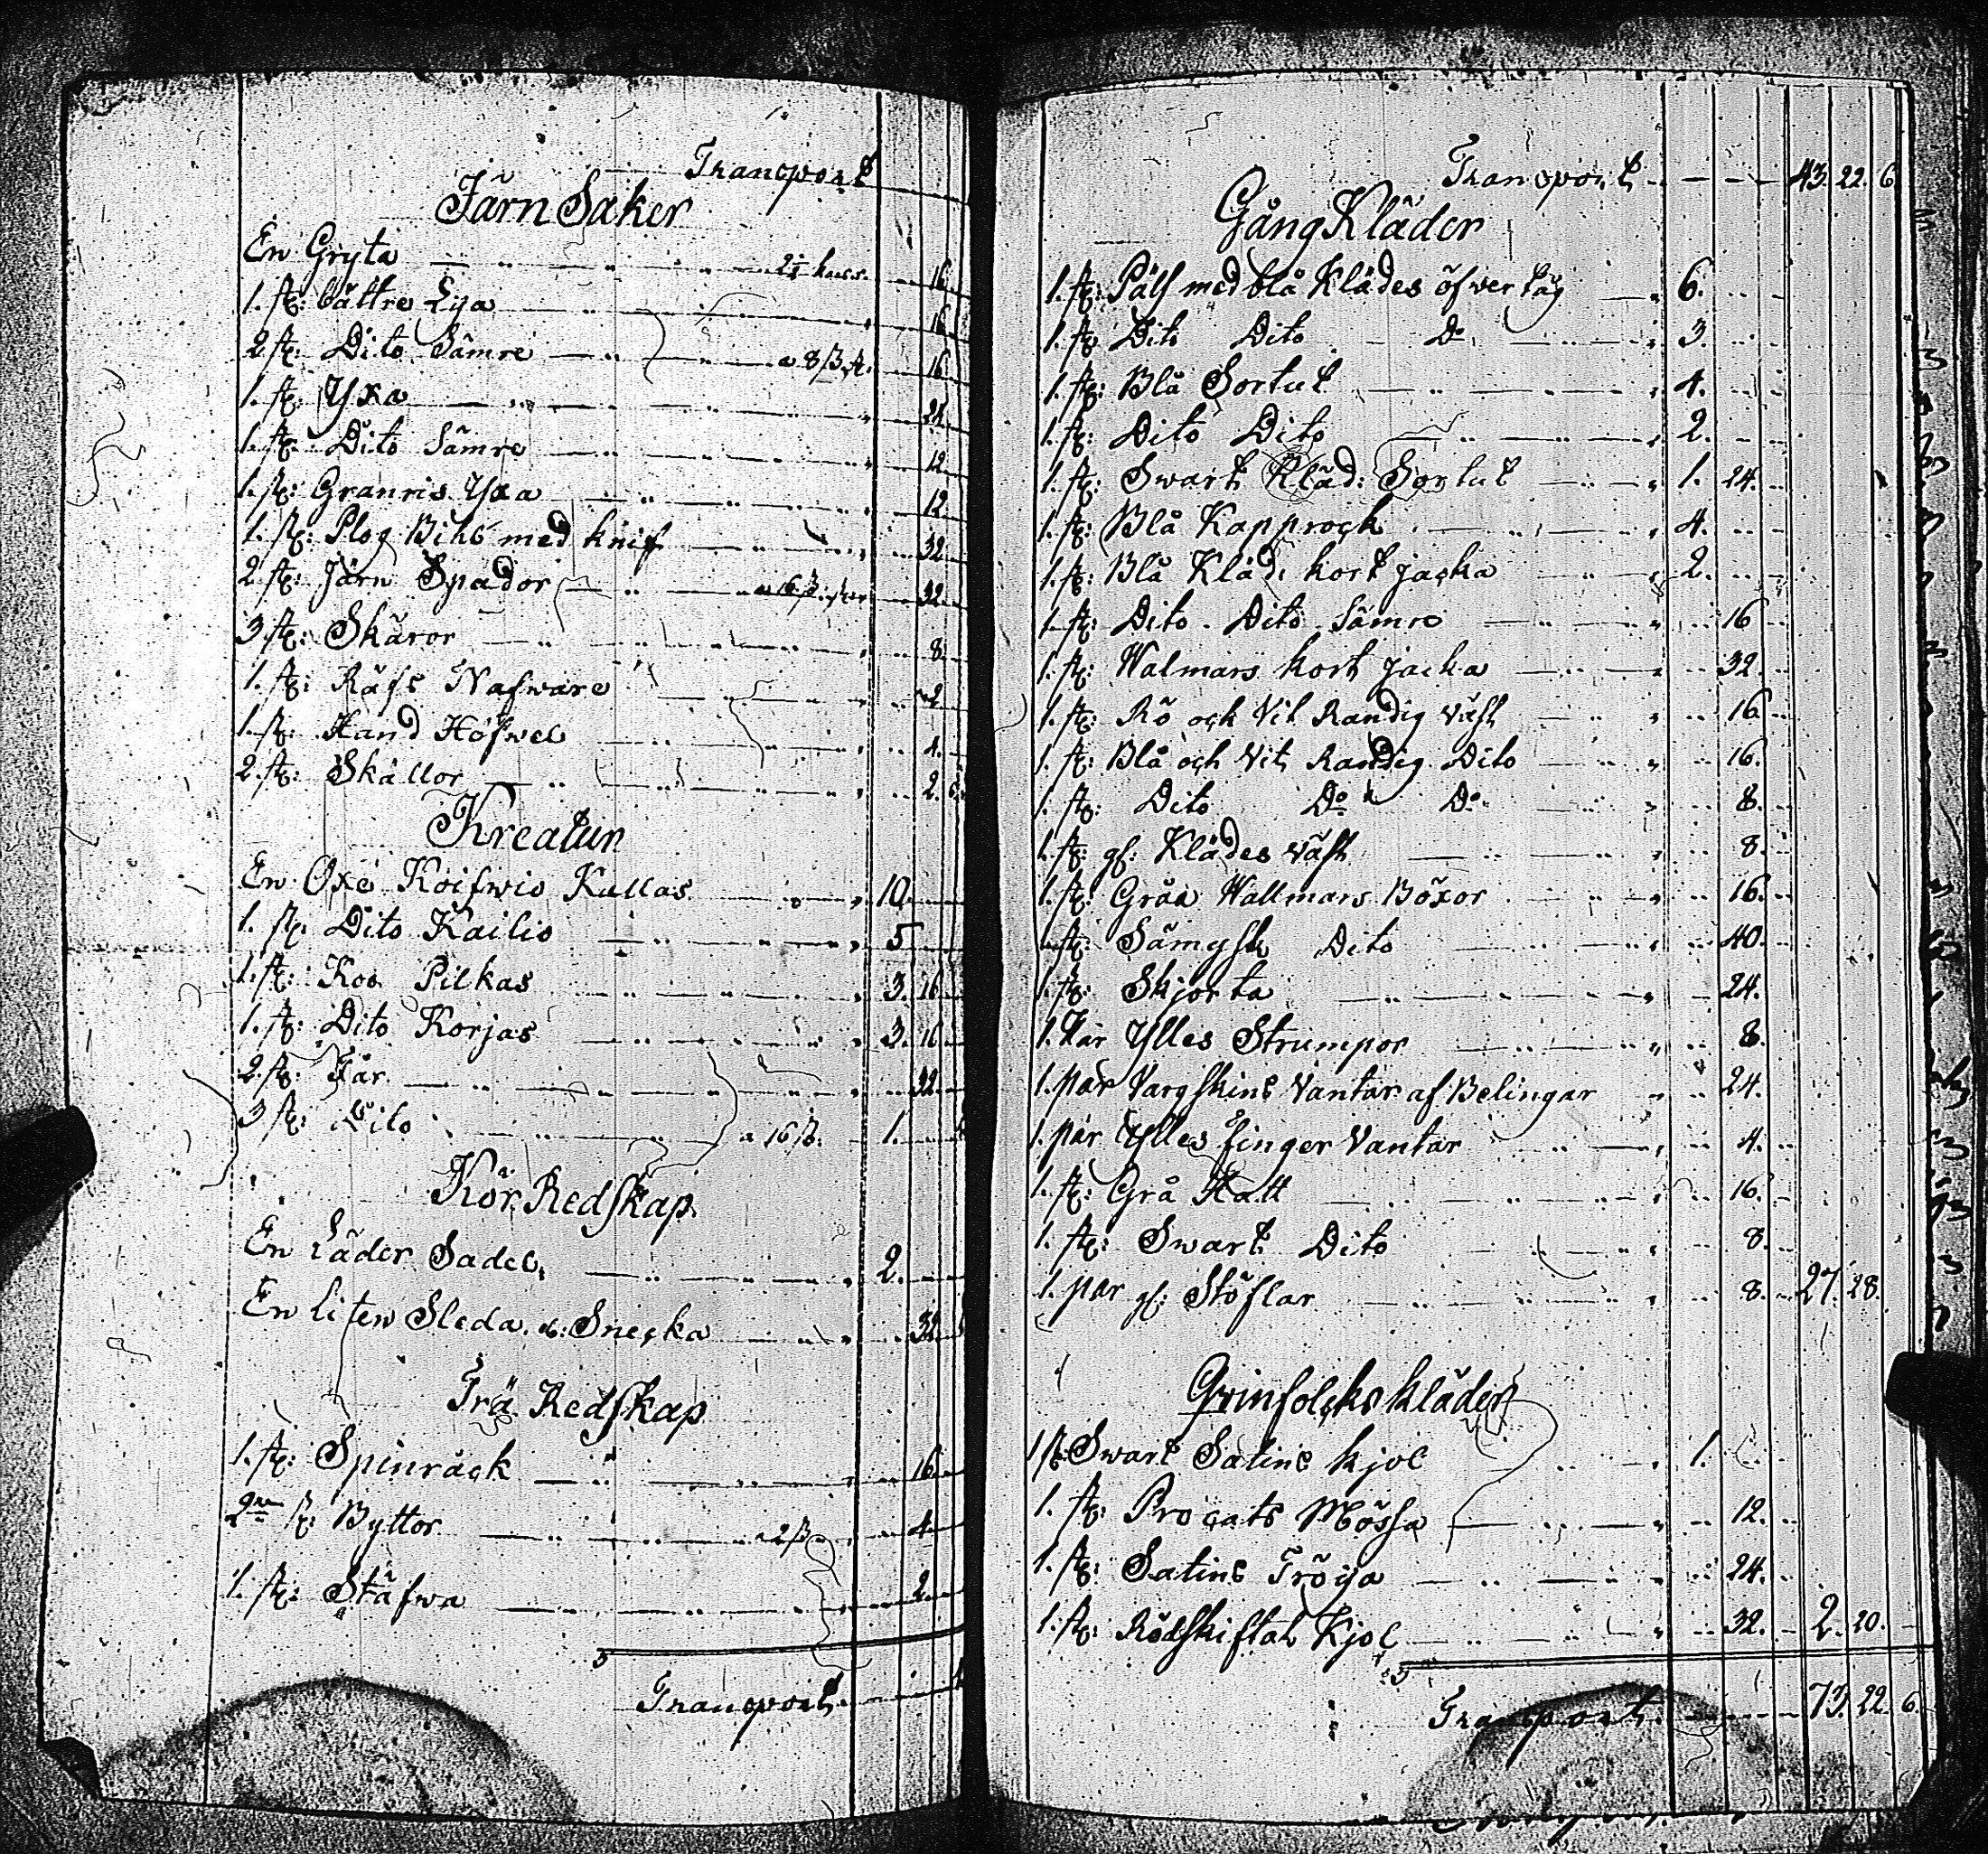 Transport
Järn Saker
En Gryta 2½ kass. 16
1. st: bättre Lya 16
2 st: Dito Sämre a 8 ß st. 16
1. st: Yxa 24
1. st. Dito Sämre 12
1. st: Granris Yxa 12
1. st: Plog med knif 32
2 st: Järn Spador a 16 ß 32
3 st: Skäror 8
1. st: Räfs Nafware 2
1. st: Hand Höfwel 4.
2. st: Skällor 2. 6
Kreatur
En Oxe Koifwio Kallas 10
1. st. Dito Kailio 5
1. st: Koo Pilkas 3. 16
1. st: Dito Korjas 3. 16
2 st: Får 32
3 st: Dito a 16 ß. 1.
Kör Redskap
En Läder Sadel 2.
En liten Sleda el: Snecka 32
Trä Redskap
1. st: Spinråck 16
2ne st: Byttor a 2 ß 4
1. st: Stäfwa 2
Transport
Transport 43. 22. 6
Gång Kläder
1. st: Päls med blå Klädes öfwertåg 6.
1. st Dito Dito Do 3
1. st: Blå Sortut 4.
1. st: Dito Dito 2.
1. st: Swart Kläd: Sortut 1. 24.
1. st: Blå Kapprock 4.
1. st: Blå Kläd: kort jacka 2.
1. st: Dito Dito Sämre 16
1. st: Walmars kort jacka 32.
1. st: Rö ock Vit Randig Väst 16
1. st: Blå och Vit Randig Dito 16.
1. st: Dito Do Do 8.
1. st: gl: Klädes Väst 8.
1. st: Gråa Wallmars Böxor 16.
1. st: Sämgsk Dito 40.
1. st: Skjorta 24.
1. Par Ylles Strumpor 8.
1. par Vargskins Vantar af Belingar 24.
1. par Ylles finger Vantar 4.
1. st: Grå Hatt 16.
1. st: Swart Dito 8.
1. par gl: Stöflar 8. 27. 28.
Qvinfolcks kläder
1 st: Swart Satins kjol 1.
1. st: Procats Mössa 12.
1. st: Satins Tröya 24.
1. st: Rödskiftat Kjol 32. 2. 20.
Transport 73. 22. 6.